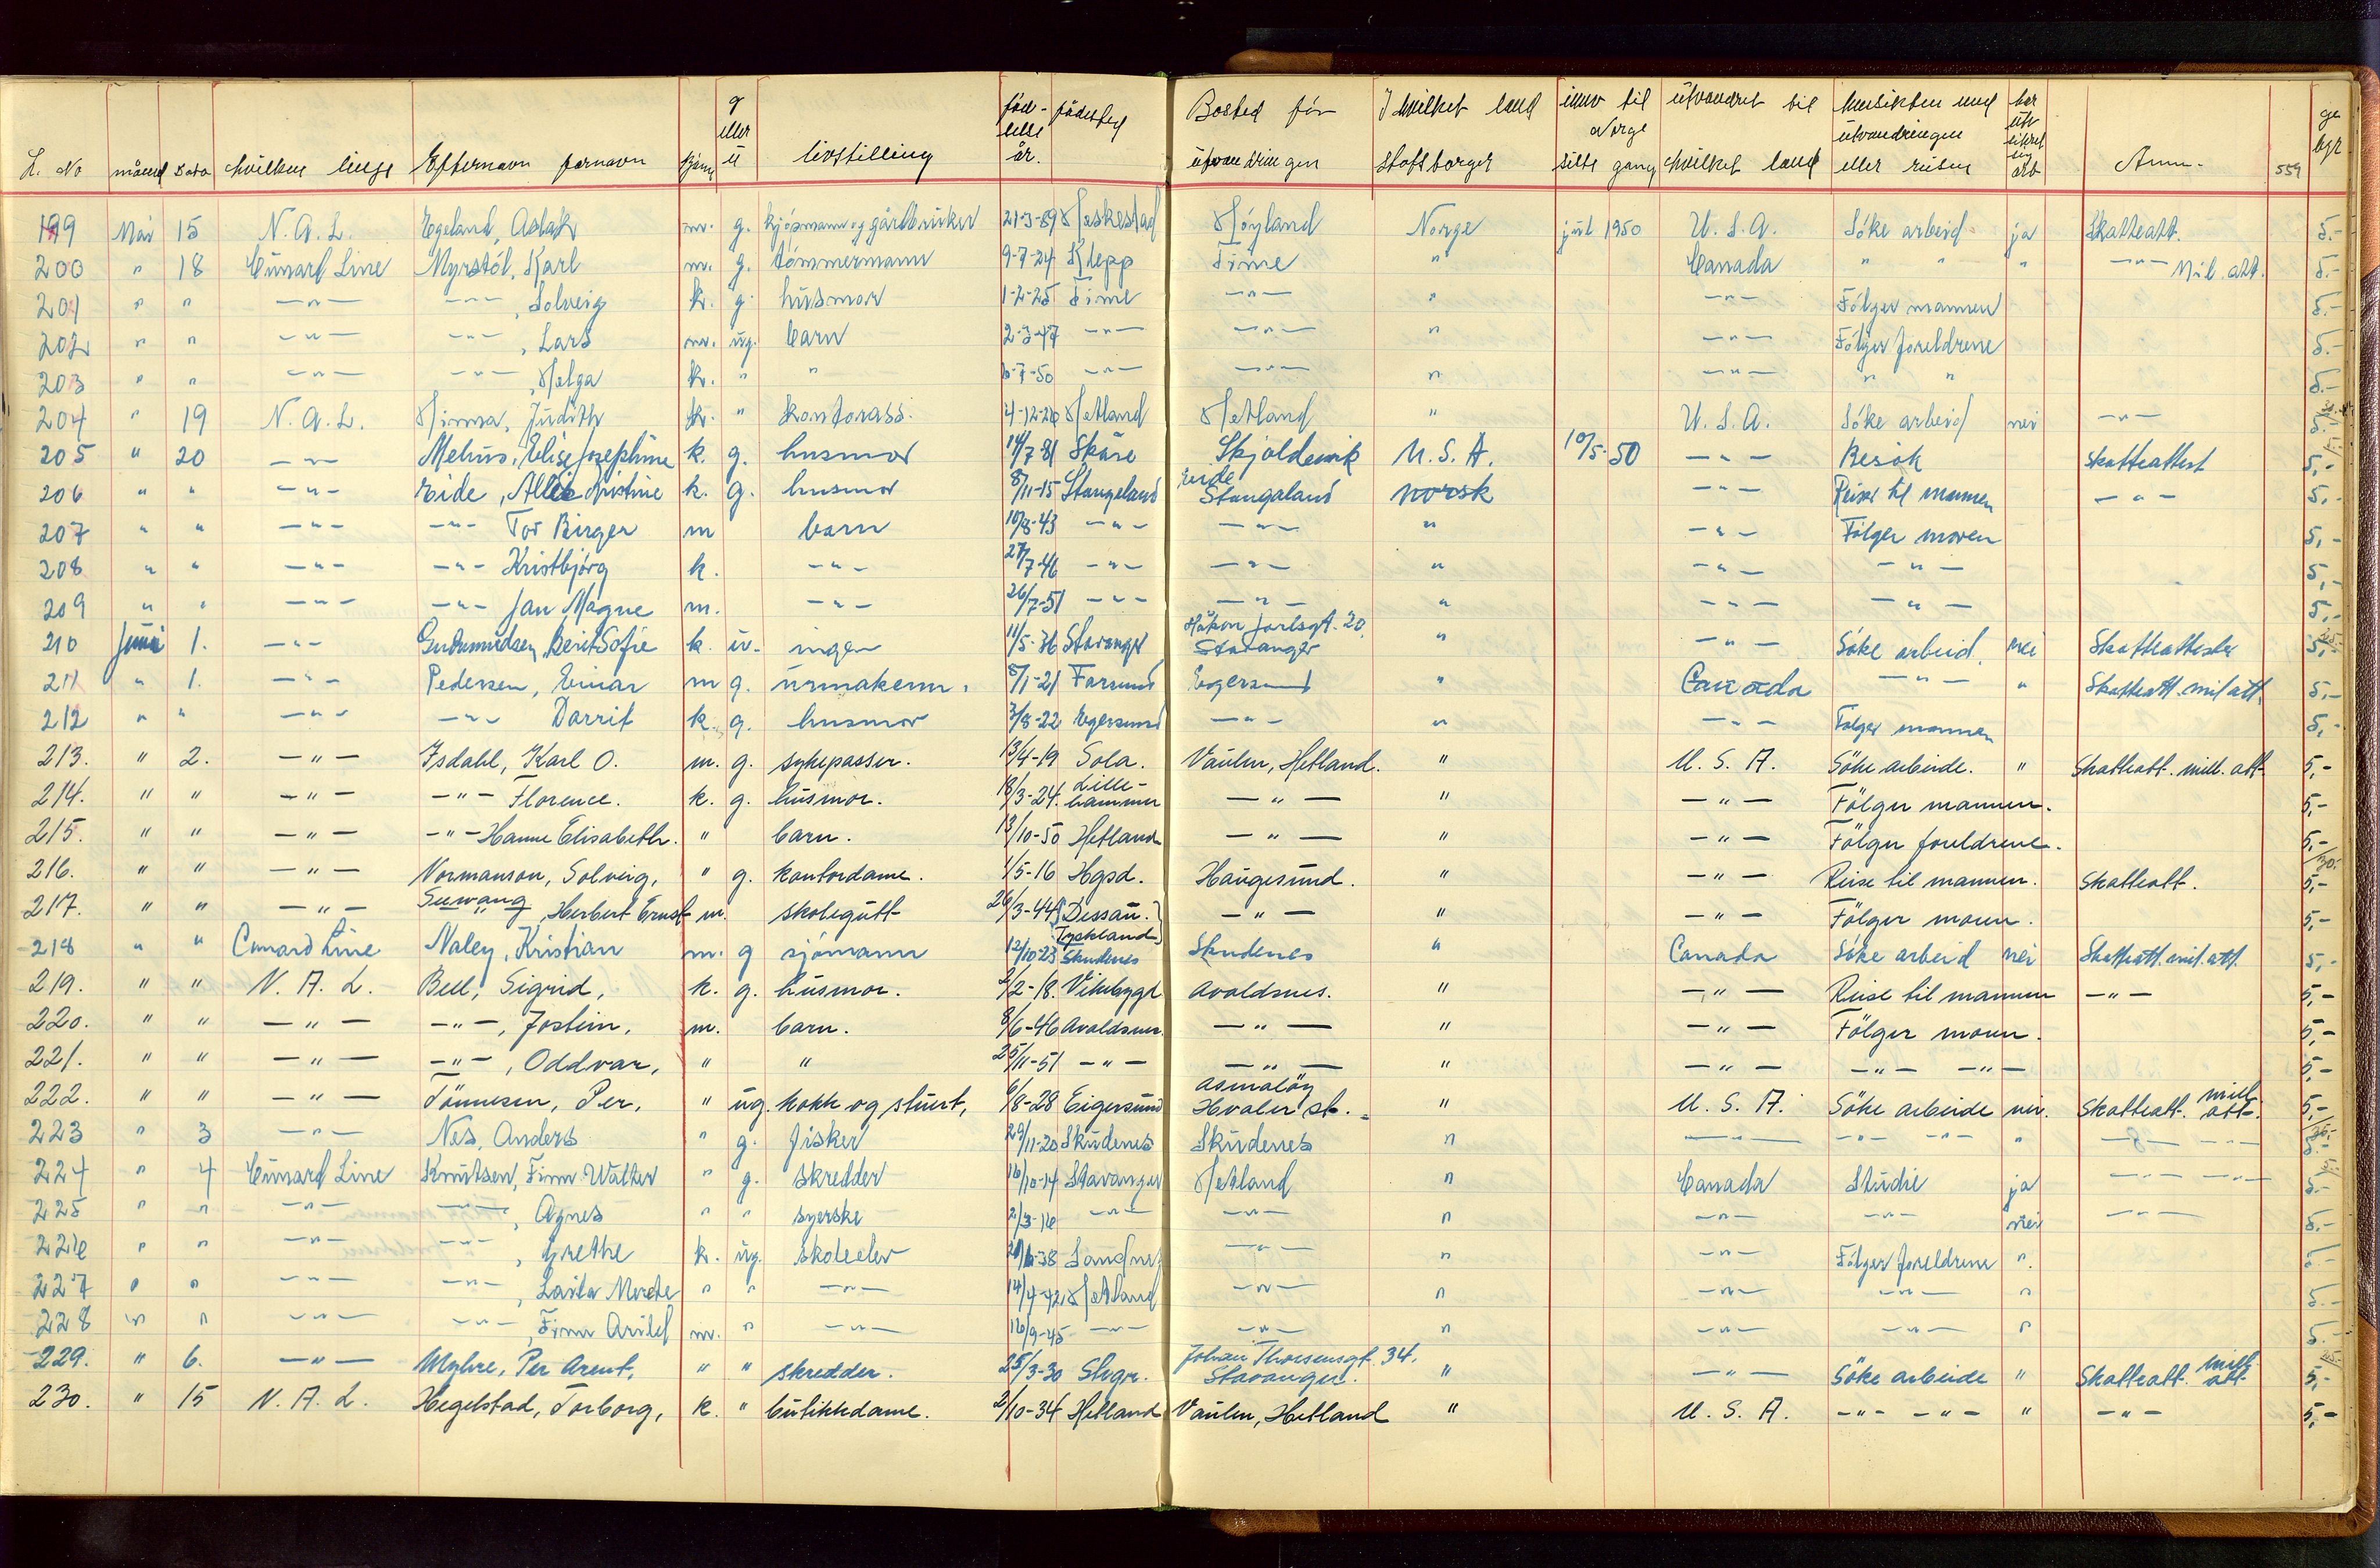 L. No måned Dato hvilken linje Efternavn fornavn kjønn g eller u livstilling fød-selsår. fødested Bosted før utvandringen I hvilket land statsborger innv til Norge siste gang utvandret til hvilket land hensikten med utvandringen eller reisen har utv sikret sig arb Anm. 559 ge byr
199 Mai 15 N.A.L. Egeland, Aslak m. g. kjøpmann og gårdbruker 21-3-89 Heskestad Høyland Norge juli 1950 U.S.A. Söke arbeid ja Skatteatt. 5.-
200 " 18 Cunard Line Myrstöl, Karl m. g. tömmermann 9-7-24 Klepp Time " Canada " " " -"- Mil. att. 5.-
201 " " -"- -"-, Solveig k. g. husmor 1-2-25 Time -"- " -"- Fölger mannen 5.-
202 " " -"- -"-, Lars m. ug. barn 2-3-47 -"- -"- " -"- Fölger foreldrene 5.-
203 " " -"- -"-, Helga k. " " 6-7-50 -"- -"- " -"- " " 5.-
204 " 19 N.A.L. Hinna, Judith k. " kontorass. 4-12-20 Hetland Hetland " U.S.A. Söke arbeid nei -"- 5.-
205 " 20 -"- Melius, Elise Josephine k. g. husmor 14/7-81 Skåre Skjoldevik U.S.A. 10/5-50 -"- Besøk skatteattest 5,-
206 " " -"- Eide, Alli Kristine k. g. husmor 8/11-15 Stangeland Eide Stangaland norsk -"- Reiser til mannen -"- 5,-
207 " " -"- -"- Tor Birger m barn 10/8-43 -"- -"- " -"- Følger moren 5,-
208 " " -"- -"- Kristbjörg k. -"- 27/7-46 -"- -"- " -"- -"- 5,-
209 " " -"- -"- Jan Magne m. -"- 26/7-51 -"- -"- " -"- -"- 5,-
210 Juni 1. -"- Gudmundsen, Berit Sofie k. u. ingen 11/5-36 Stavanger Håkon Jarlsgt. 20. Stavanger " -"- Söke arbeid. nei Skatteattester 5,-
211 " 1. -"- Pedersen, Einar m g. urmakerm. 8/1-21 Farsund Egersund " Canada -"- " Skatteatt. mil att. 5,-
212 " " -"- -"- Dorrit k. g. husmor 3/8-22 Egersund -"- " -"- Følger mannen 5,-
213. " 2. -"- Isdahl, Karl O. m. g. sykepasser. 13/4-19 Sola. Vaulen, Hetland. " U.S.A. Söke arbeide. " Skatteatt. mill. att. 5,-
214. " " -"- -"- Florence. k. g. husmor. 18/3-24. Lille-hammer -"- " -"- Fölger mannen. 5,-
215. " " -"- -"- Hanne Elisabeth. " barn. 13/10-50 Hetland -"- " -"- Fölger foreldrene. 5,-
216. " " -"- Normanson, Solveig, " g. kontordame. 1/5-16 Hgsd. Haugesund. " -"- Reise til mannen. Skatteatt. 5,-
217. " " -"- Seewang, Herbert Ernst m. skolegutt 26/3-44 (Dessau. Tyskland) -"- " -"- Fölger moren. 5,-
218 " " Cunard Line Naley, Kristian m. g sjømann 12/10-23 Skudenes Skudenes " Canada Söke arbeid nei Skatteatt. mil. att. 5,-
219. " " N.A.L. Bell, Sigrid, k. g. husmor. 2/2-18. Vikebygd Avaldsnes. " -"- Reise til mannen -"- 5,-
220. " " -"- -"-, Jostein, m. barn. 8/6-46 Avaldsnes. -"- " -"- Fölger moren. 5,-
221. " " -"- -"-, Oddvar, " " 25/11-51 -"- -"- " -"- -"- -"- 5,-
222. " " -"- Tönnesen, Per, " ug. kokk og stuert, 6/8-28 Eigersund Asmalöy Hvaler st. " U.S.A. Söke arbeide nei. Skatteatt. mill. att. 5,-
223 " 3 -"- Nes, Anders " g. fisker 29/11-20 Skudenes Skudenes " -"- -"- -"- " -"- -"- 5.-
224 " 4 Cunard Line Knutsen, Finn Walter " g. skredder 16/10-14 Stavanger Hetland " Canada Studie ja -"- -"- 5.-
225 " " -"- -"-, Agnes " " syerske 2/3-16 -"- -"- " -"- -"- nei -"- 5.-
226 " " -"- -"-, Grethe k. ug. skoleelev 38 Sandnes -"- " -"- Fölger foreldrene " 5.-
227 " " -"- -"-, Laila Merete " " -"- 14/4-42 Hetland -"- " -"- -"- " 5.-
228 " " -"- -"-, Finn Arild m. " -"- 16/9-45 -"- -"- " -"- -"- " 5.-
229. " 6. -"- Myhre, Per Arent, " " skredder. 25/3-30 Stvgr. Johan Thorsensgt. 34. Stavanger. " -"- Söke arbeide " Skatteatt. mill. att. 5,-
230. " 15 N.A.L. Hegelstad, Torborg, k. " butikkdame. 2/10-34 Hetland Vaulen, Hetland " U.S.A. -"- -"- " -"- 5,-